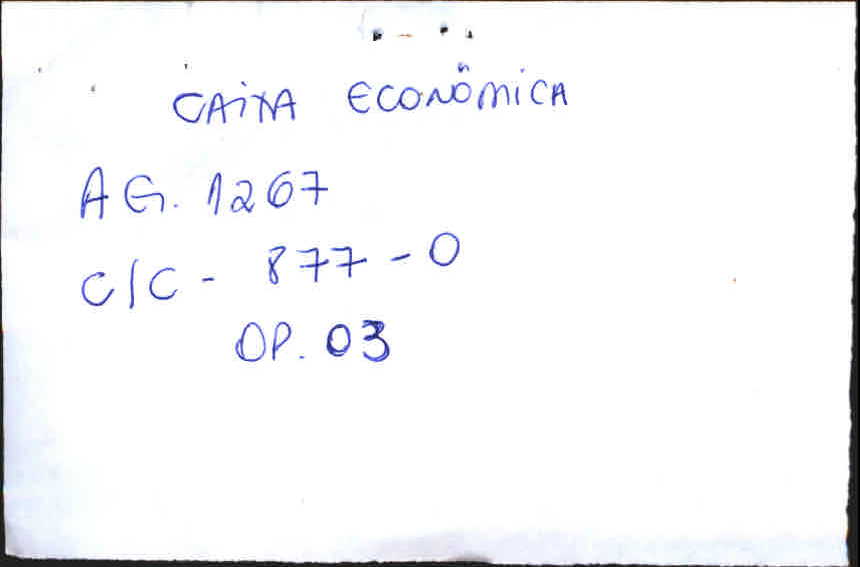 CAIXA ECONÔMICA
AG. 1267
C/C - 877-0
OP. 03